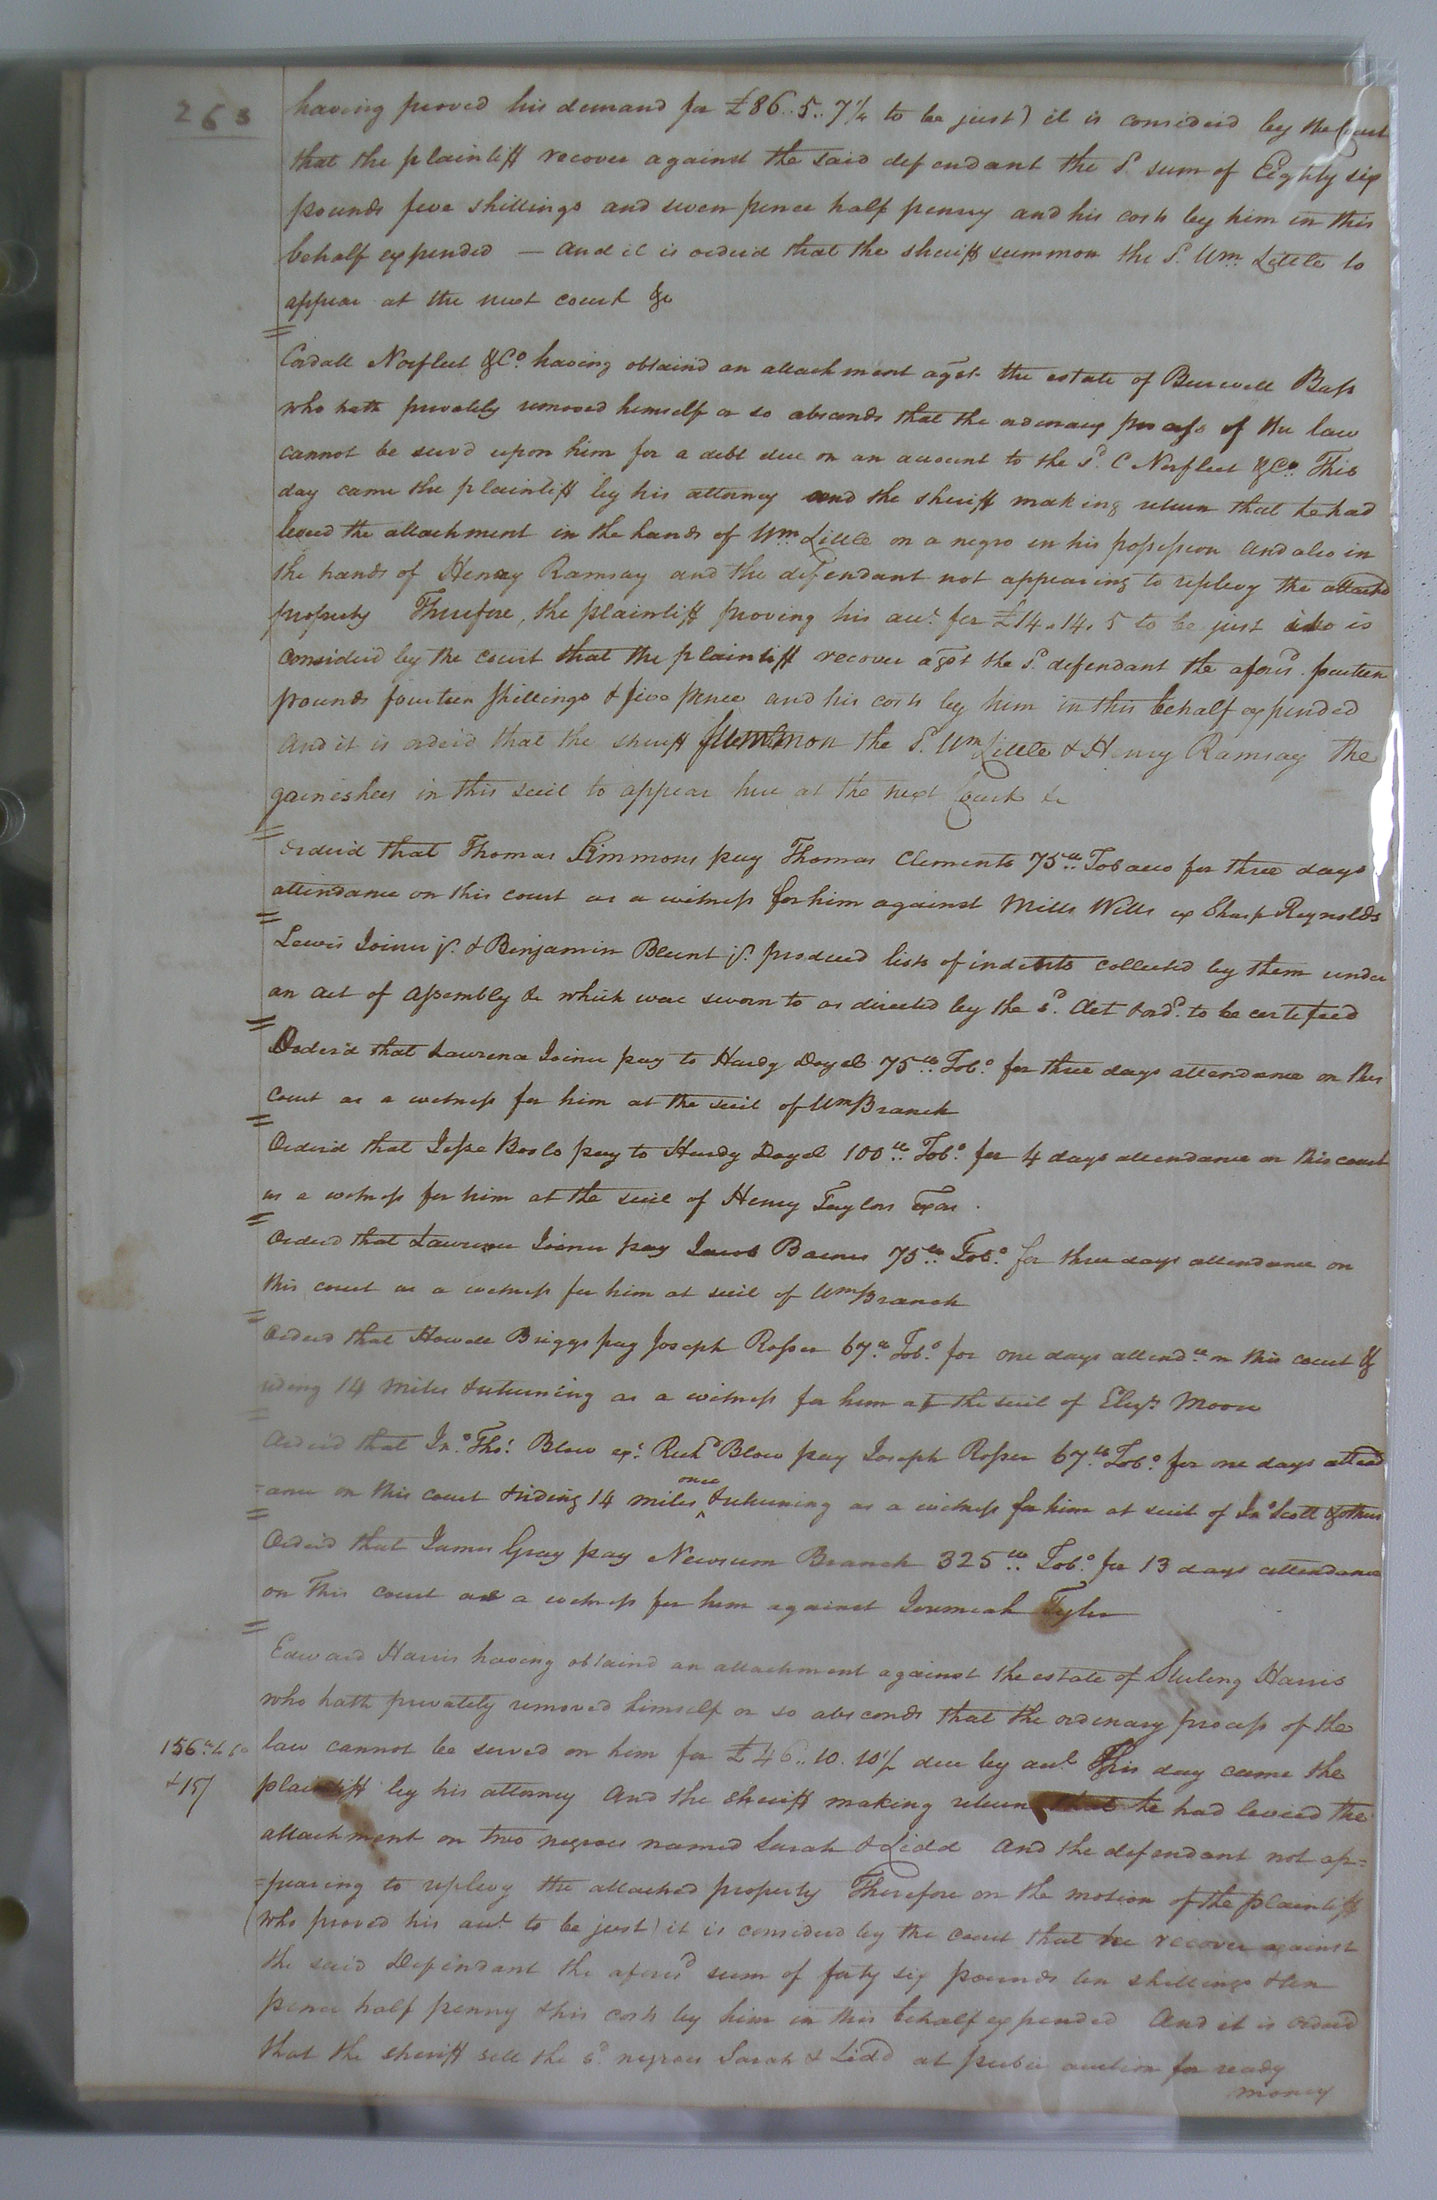 263
having proved his demand for £86..5..7½ to be just) it is considerd by the Court
that the plaintiff recover against the said defendant the sd. sum of Eighty six
pounds five shillings and seven pence half penny and his costs by him in this
behalf expended — And it is orderd that the sheriff summon the sd. Wm. Little to
appear at the next court &c
Cordall Norfleet &Co. having obtaind an attachment agst. the estate of Burwell Bass
who hath privately removed himself or so absconds that the ordenary process of the law
cannot be servd upon him for a debt due on an account to the sd. C Norfleet &Co. This
day came the plaintiff by his attorney and the sheriff making return that he had
levied the attachment in the hands of Wm. Little on a negro in his possession And also in
the hands of Henry Ramsay and the defendant not appearing to replevy the attached
property Therefore, the plaintiff proving his acct. for £14.14.5 to be just is
considerd by the court that the plaintiff recover agst the sd. defendant the aforesd. fourteen
pounds fourteen shillings & five pence and his costs by him in this behalf expended
And it is orderd that the sheriff summon the sd. Wm Little & Henry Ramsay the
garnishees in this suit to appear here at the next Court &c
Orderd that Thomas Simmons pay Thomas Clements 75lb.. Tobacco for three days
attendance on this court as a witness for him against Mills Wills ex Sharp Reynolds
Lewis Joiner jr. & Benjamin Blunt jr. produced lists of indents collected by them under
an act of Assembly &c which were sworn to as directed by the sd. Act & ord. to be certefied
Orderd that Lawrence Joiner pay to Hardy Doyel 75lb.. Tobo. for three days attendance on this
court as a witness for him at the suit of Wm Branch
Orderd that Jesse pay to Hardy Doyel 100lb.. Tobo. for 4 days attendance on this court
as a witness for him at the suit of Henry Taylors Exors.
Orderd that Lawrence Joiner pay Jacob Barnes 75lb.. Tobo. for three days attendance on
this court as a witness for him at suit of Wm Branch
Orderd that Howell Briggs pay Joseph Rosser 67lb. Tobo. for one days attendce on this court &
riding 14 miles & returning as a witness for him at the suit of Elizt. Moore
Orderd that Jno. Thos. Blow exr. Richd Blow pay Joseph Rosser 67lb. Tobo. for one days attend
=ance on this court & riding 14 miles once & returning as a witness for him at suit of Jno Scott & others
Orderd that James Gray pay Newsum Branch 325lb.. Tobo. for 13 days attendance
on This court as a witness for him against Jeremiah Tyler
Edward Harris having obtaind an attachment against the estate of Sterling Harris
who hath privately removed himself or so absconds that the ordenary process of the
156lb. tobo law cannot be served on him for £46..10.10½ due by acct. This day came the
& 15/ plaintiff by his attorney And the sheriff making return that he had levied the
attachment on two negroes named Sarah & Lidd And the defendant not ap=
=pearing to replevy the attached property Therefore on the motion of the plaintiff
(who proved his acct to be just) it is considerd by the court that he recover against
the said Defendant the aforesd sum of forty six pounds ten shillings & ten
pence half penny & his costs by him in this behalf expended And it is orderd
that the sheriff sell the sd. negroes Sarah & Lidd at public auction for ready
money